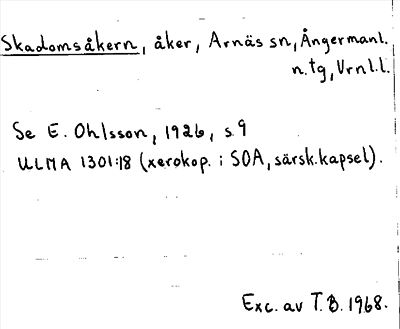 Skadomsåkern, åker, Arnäs sn, Ångermanl.
n.tg, Vrnl.l.
Se E. Ohlsson, 1926, s.9
ULMA 1301:18 (xerokop. i SOA, särsk.kapsel).
Exc. av T.B. 1968.